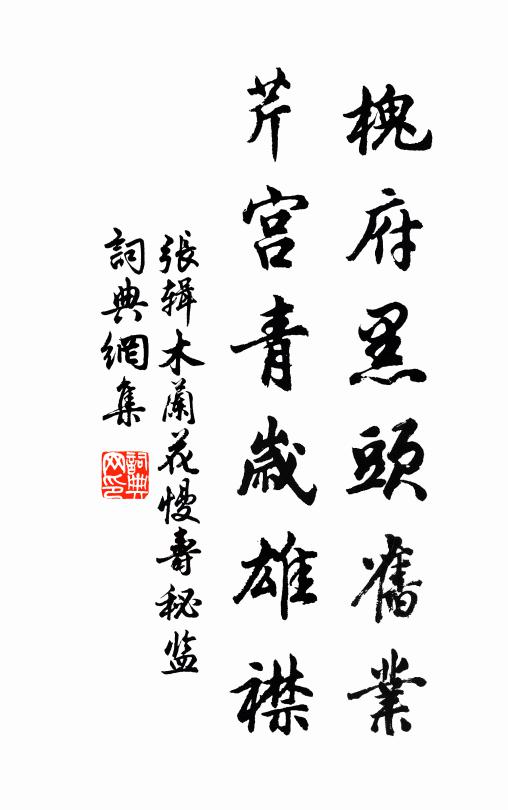 槐府黑頭舊業
芹宫青歲雄襟
張辑木蘭花慢壽秘监
詞典網集
詞典網印